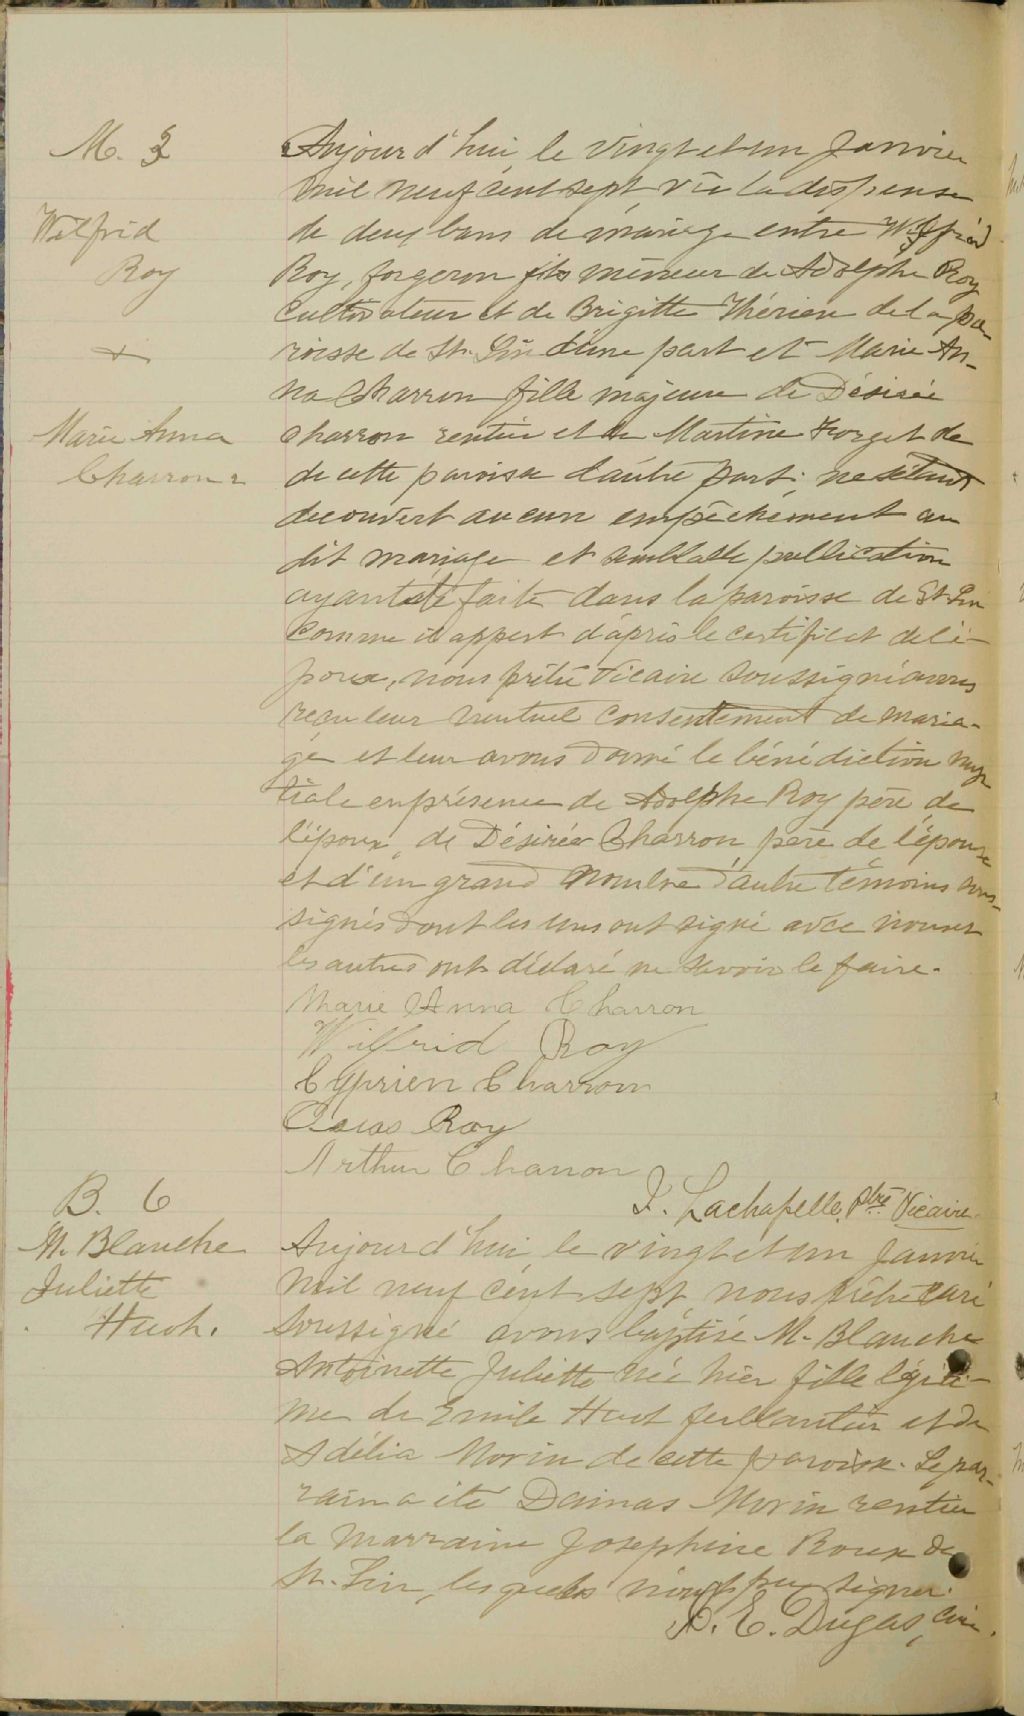 M. 3
Wilfrid
Roy
+
Marie Anna
Charron
Aujourd'hui, le vingt et un Janvier
mil neuf cent sept, vu la dispense
de deux bans de mariage entre Wilfrid
Roy, forgeron fils mineur de Adolphe Roy
cultivateur et de Brigitte Thérien de la pa-
roisse de St. Lin d'une part et Marie An-
na Charron fille majeure de Désirée
Charron rentier et de Martine Forget de
de cette paroisse d'autre part; ne s'étant
decouvert aucun empêchement au
dit mariage et semblable publication
ayant été faite dans la paroisse de St. Lin
comme il appert d'après le certificat de l'é-
poux, nous prêtre Vicaire soussigné avons
reçu leur mutuel consentement de maria-
ge et leur avons donné le bénédiction nup
tiale en présence de Adolphe Roy père de
l'époux, de Désirée Charron père de l'épouse
et d'un grand nombre d'autre témoins sous-
signés dont les uns ont signé avec nous et
les autres ont déclaré ne savoir le faire.
Marie Anna Charron
Wilfrid Roy
Cyprien Charron
Roy
Arthur Charron
J. Lachapelle, Ptre Vicaire.
B. 6
M. Blanche
Juliette
Huot.
Aujourd'hui le vingt et un Janvier
mil neuf cent sept nous prêtre curé
soussigné avons baptisé M. Blanche
Antoinette Juliette née hier fille légiti-
me de Emile Huot ferblantier et de
Adélia Morin de cette paroisse. Le par-
rain a été Damas Morin rentier
la marraine Josephine Roux de
St. Lin, lesquels n'ont pu signer.
A. E. Dugas, curé.